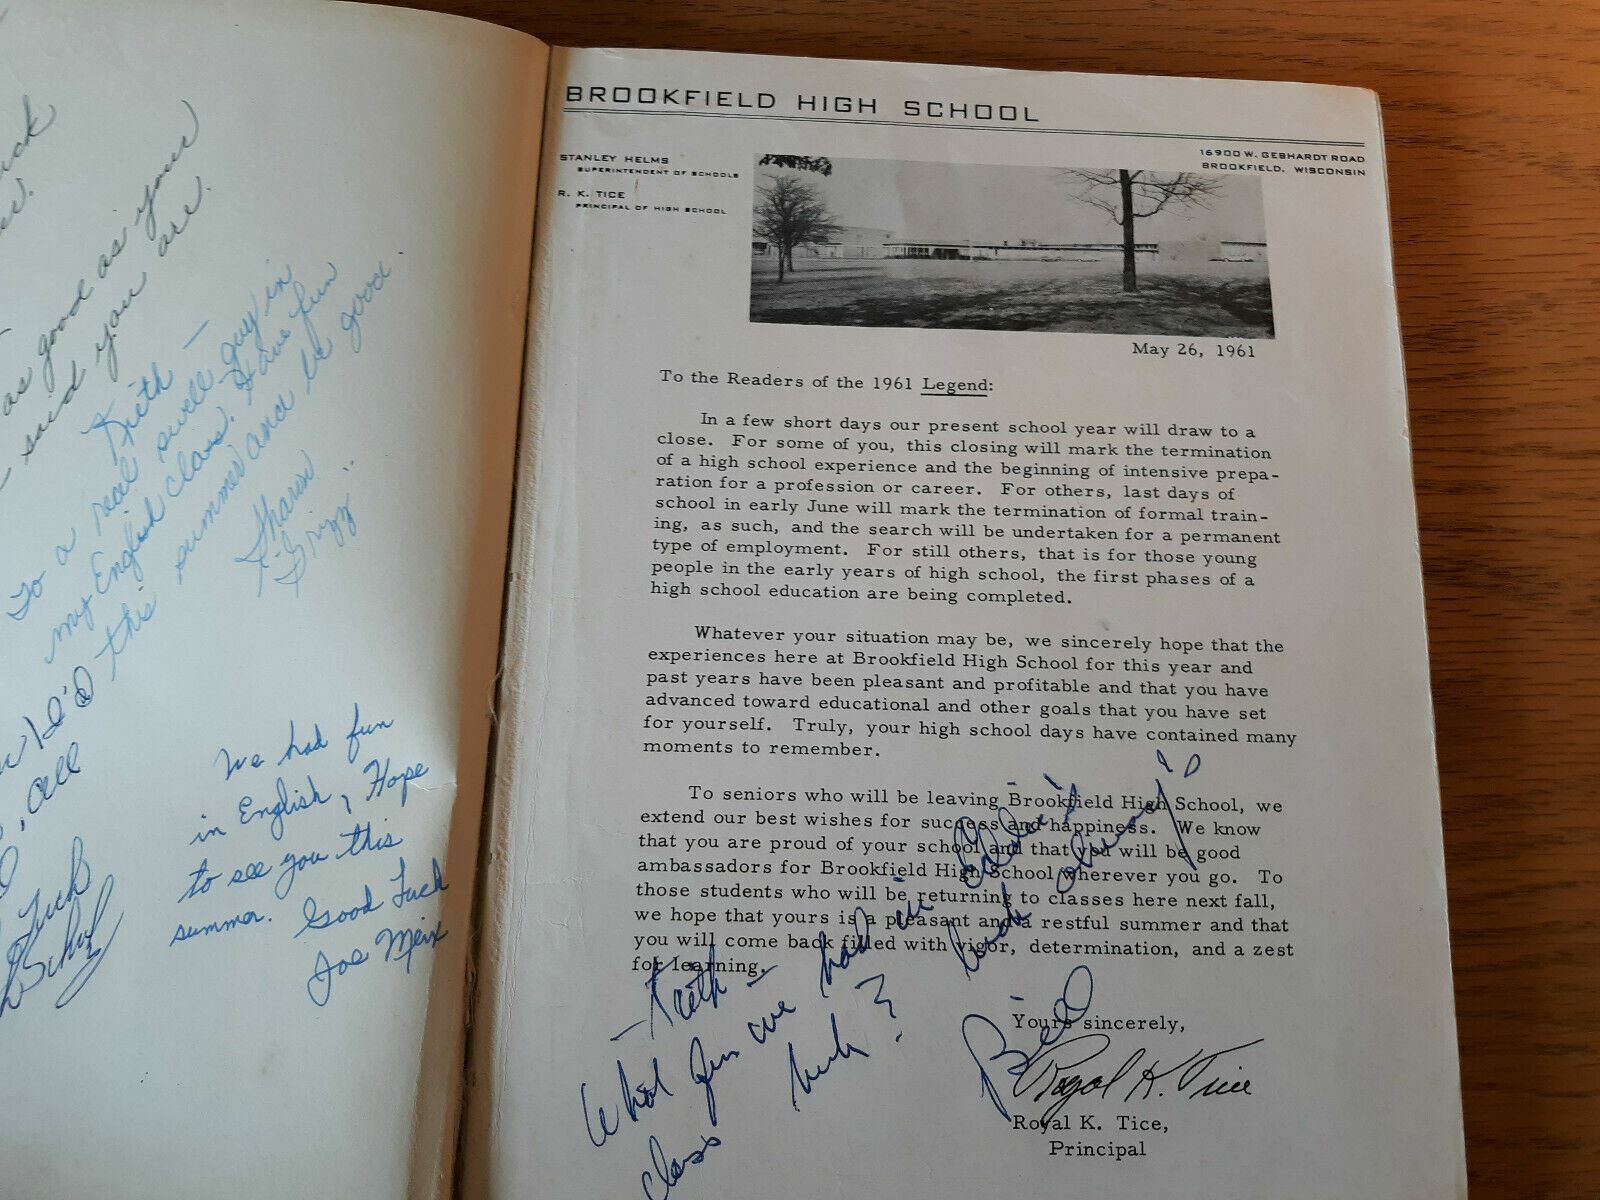 as good as your
said you are.
Keith —
To a real swell guy in
my English class. Have fun
this summer and be good.
Sharon
Grizz
all
We had fun
in English, Hope
to see you this
summer. Good Luck
Joe Meix
BROOKFIELD HIGH SCHOOL
STANLEY HELMS
SUPERINTENDENT OF SCHOOLS
R. K. TICE
PRINCIPAL OF HIGH SCHOOL
16900 W. GEBHARDT ROAD
BROOKFIELD, WISCONSIN
May 26, 1961
To the Readers of the 1961 Legend:
In a few short days our present school year will draw to a
close. For some of you, this closing will mark the termination
of a high school experience and the beginning of intensive prepa-
ration for a profession or career. For others, last days of
school in early June will mark the termination of formal train-
ing, as such, and the search will be undertaken for a permanent
type of employment. For still others, that is for those young
people in the early years of high school, the first phases of a
high school education are being completed.
Whatever your situation may be, we sincerely hope that the
experiences here at Brookfield High School for this year and
past years have been pleasant and profitable and that you have
advanced toward educational and other goals that you have set
for yourself. Truly, your high school days have contained many
moments to remember.
To seniors who will be leaving Brookfield High School, we
extend our best wishes for success and happiness. We know
that you are proud of your school and that you will be good
ambassadors for Brookfield High School wherever you go. To
those students who will be returning to classes here next fall,
we hope that yours is a pleasant and a restful summer and that
you will come back filled with vigor, determination, and a zest
for learning.
Yours sincerely,
Royal K. Tice
Royal K. Tice,
Principal
— Keith —
What fun we had in
class huh? Luck always
Bill